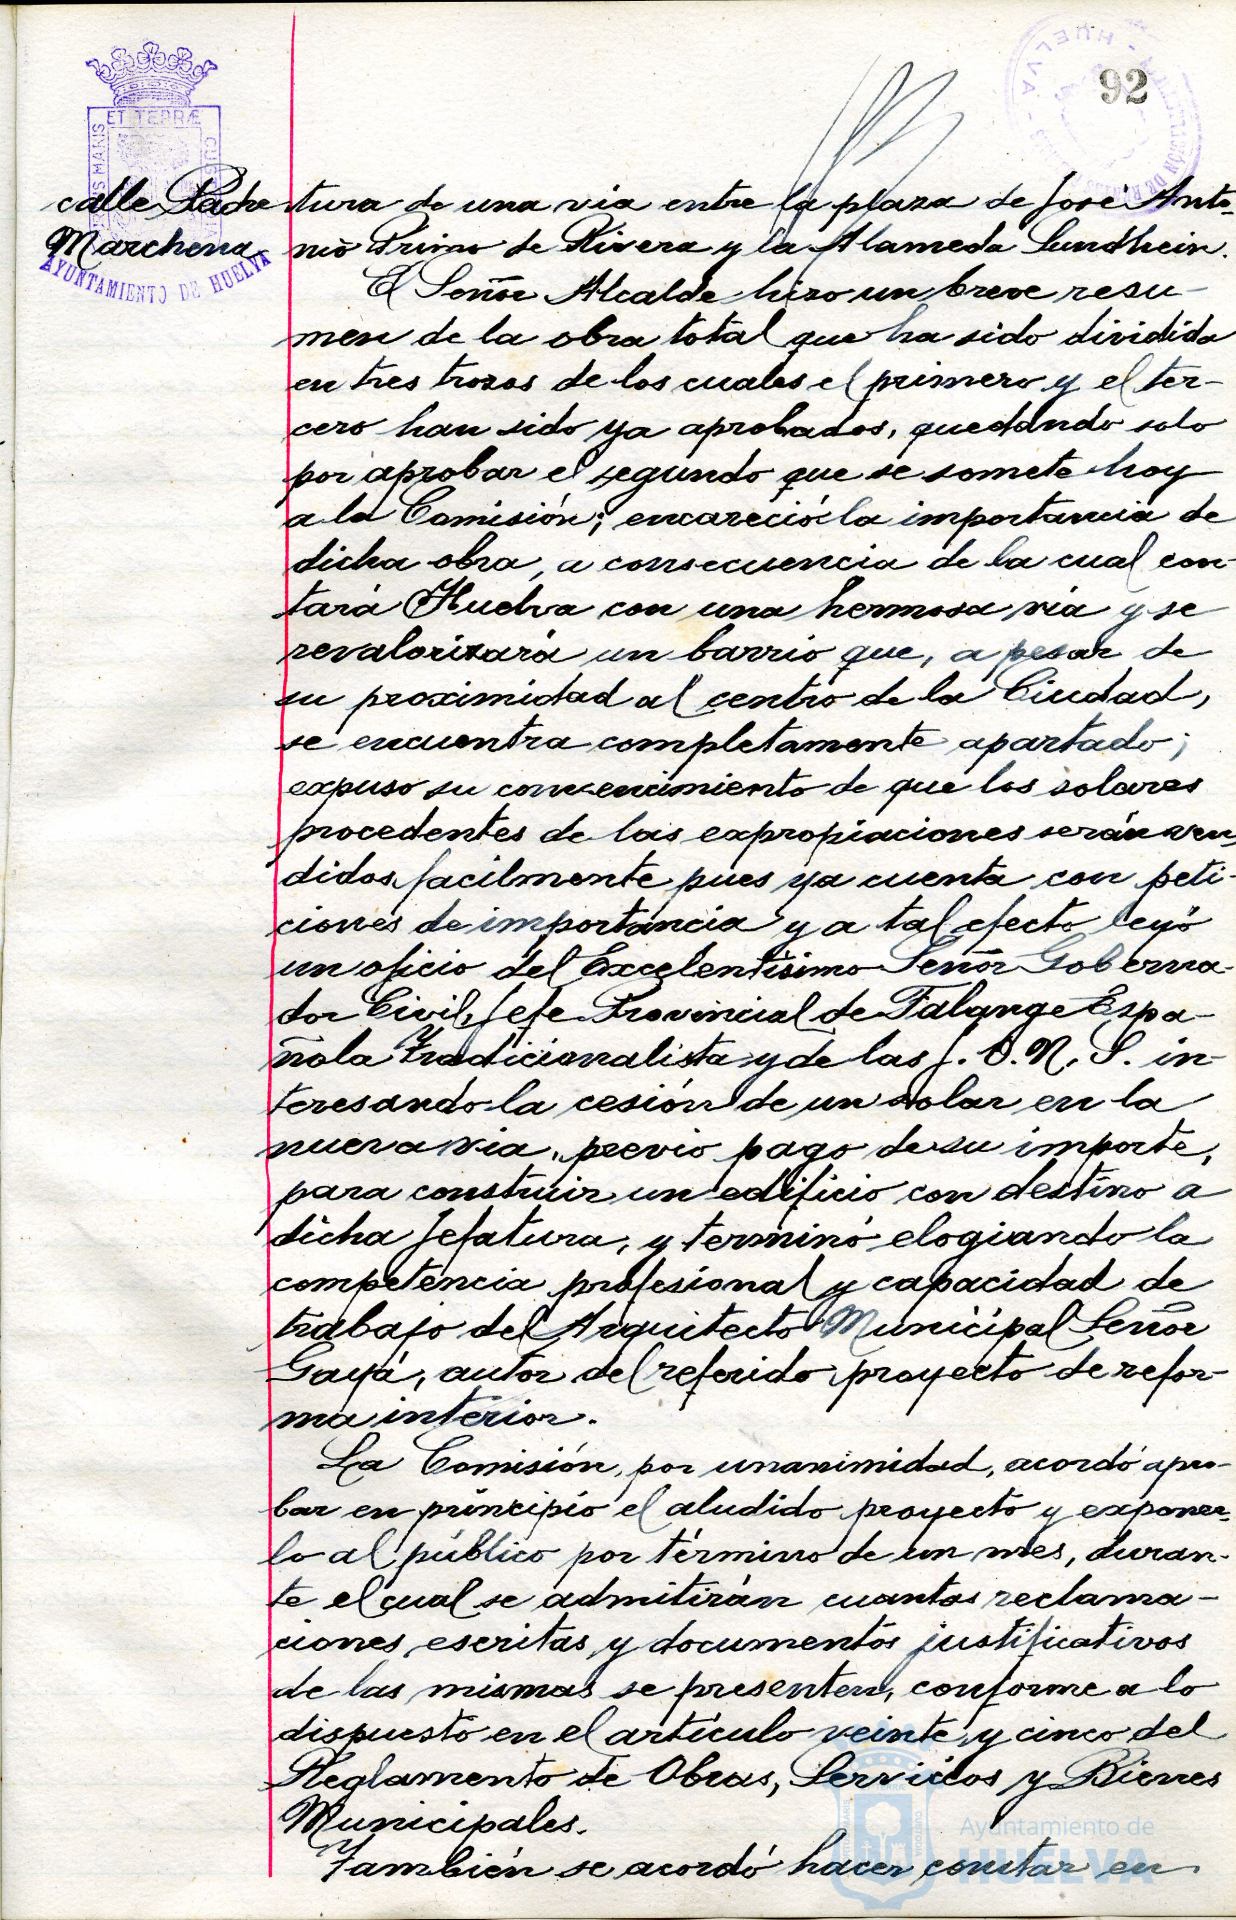 HUELVA
92
ET TERRÆ
calle Padre
Marchena
AYUNTAMIENTO DE HUELVA
tura de una via entre la plaza de José Anto-
nio Primo de Rivera y la Alameda Sundhein.
El Señor Alcalde hizo un breve resu-
men de la obra total que ha sido dividida
en tres trozos de los cuales el primero y el ter-
cero han sido ya aprobados, quedando solo
por aprobar el segundo que se somete hoy
a la Comisión; encareció la importancia de
dicha obra, a consecuencia de la cual con-
tará Huelva con una hermosa via y se
revalorizará un barrio que, a pesar de
su proximidad al centro de la Ciudad,
se encuentra completamente apartado;
expuso su convencimiento de que los solares
procedentes de las expropiaciones serán ven-
didos facilmente pues ya cuenta con peti-
ciones de importancia y a tal efecto leyó
un oficio del Excelentísimo Señor Goberna-
dor Civil, Jefe Provincial de Falange Espa-
ñola Tradicionalista y de las J. O. N. S. in-
teresando la cesión de un solar en la
nueva via, previo pago de su importe,
para construir un edificio con destino a
dicha Jefatura, y terminó elogiando la
competencia profesional y capacidad de
trabajo del Arquitecto Municipal Señor
Gayá, autor del referido proyecto de refor-
ma interior.
La Comisión, por unanimidad, acordó apro-
bar en principio el aludido proyecto y exponer-
lo al público por término de un mes, duran-
te el cual se admitirán cuantas reclama-
ciones escritas y documentos justificativos
de las mismas se presenten, conforme a lo
dispuesto en el artículo veinte y cinco del
Reglamento de Obras, Servicios y Bienes
Municipales.
También se acordó hacer constar en
Ayuntamiento de
HUELVA